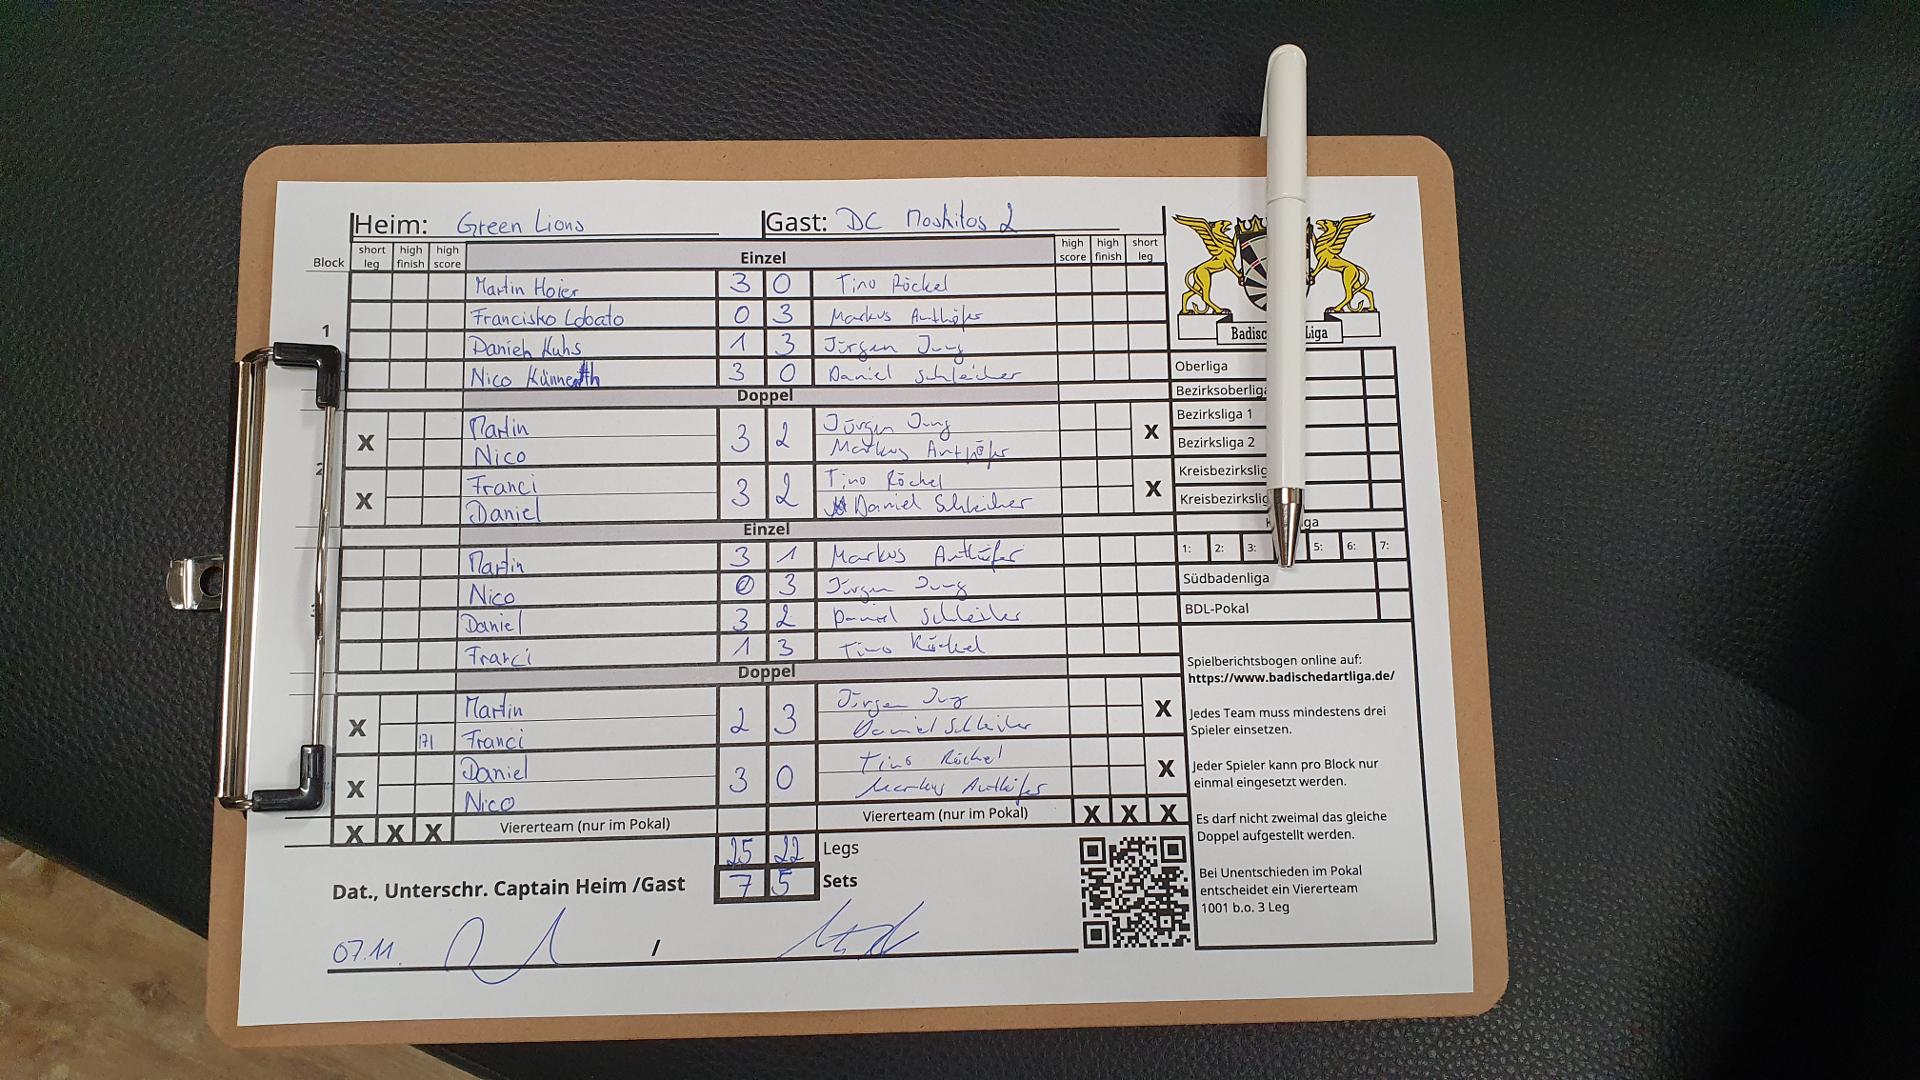 Heim: Green Lions Gast: DC Moskitos 2
Block short leg high finish high score Einzel high score high finish short leg
Martin Hoier 3 0 Tino Röckel
1 Francisko Lobato 0 3 Markus Anthöfer
Daniel Kuhs 1 3 Jürgen Jung
Nico Künneth 3 0 Daniel Schleicher
Doppel
X Martin 3 2 Jürgen Jung X
Nico Markus Anthöfer
2
X Franci 3 2 Tino Röckel X
Daniel Daniel Schleicher
Einzel
Martin 3 1 Markus Anthöfer
Nico 0 3 Jürgen Jung
3 Daniel 3 2 Daniel Schleicher
Franci 1 3 Tino Röckel
Doppel
X Martin 2 3 Jürgen Jung X
171 Franci Daniel Schleicher
X Daniel 3 0 Tino Röckel X
Nico Markus Anthöfer
X X X Viererteam (nur im Pokal) Viererteam (nur im Pokal) X X X
25 22 Legs
Dat., Unterschr. Captain Heim /Gast 7 5 Sets
07.11. /
Oberliga
Bezirksoberliga
Bezirksliga 1
Bezirksliga 2
Kreisbezirkslig
Kreisbezirkslig
1: 2: 3: 5: 6: 7:
Südbadenliga
BDL-Pokal
Spielberichtsbogen online auf:
https://www.badischedartliga.de/
Jedes Team muss mindestens drei
Spieler einsetzen.
Jeder Spieler kann pro Block nur
einmal eingesetzt werden.
Es darf nicht zweimal das gleiche
Doppel aufgestellt werden.
Bei Unentschieden im Pokal
entscheidet ein Viererteam
1001 b.o. 3 Leg